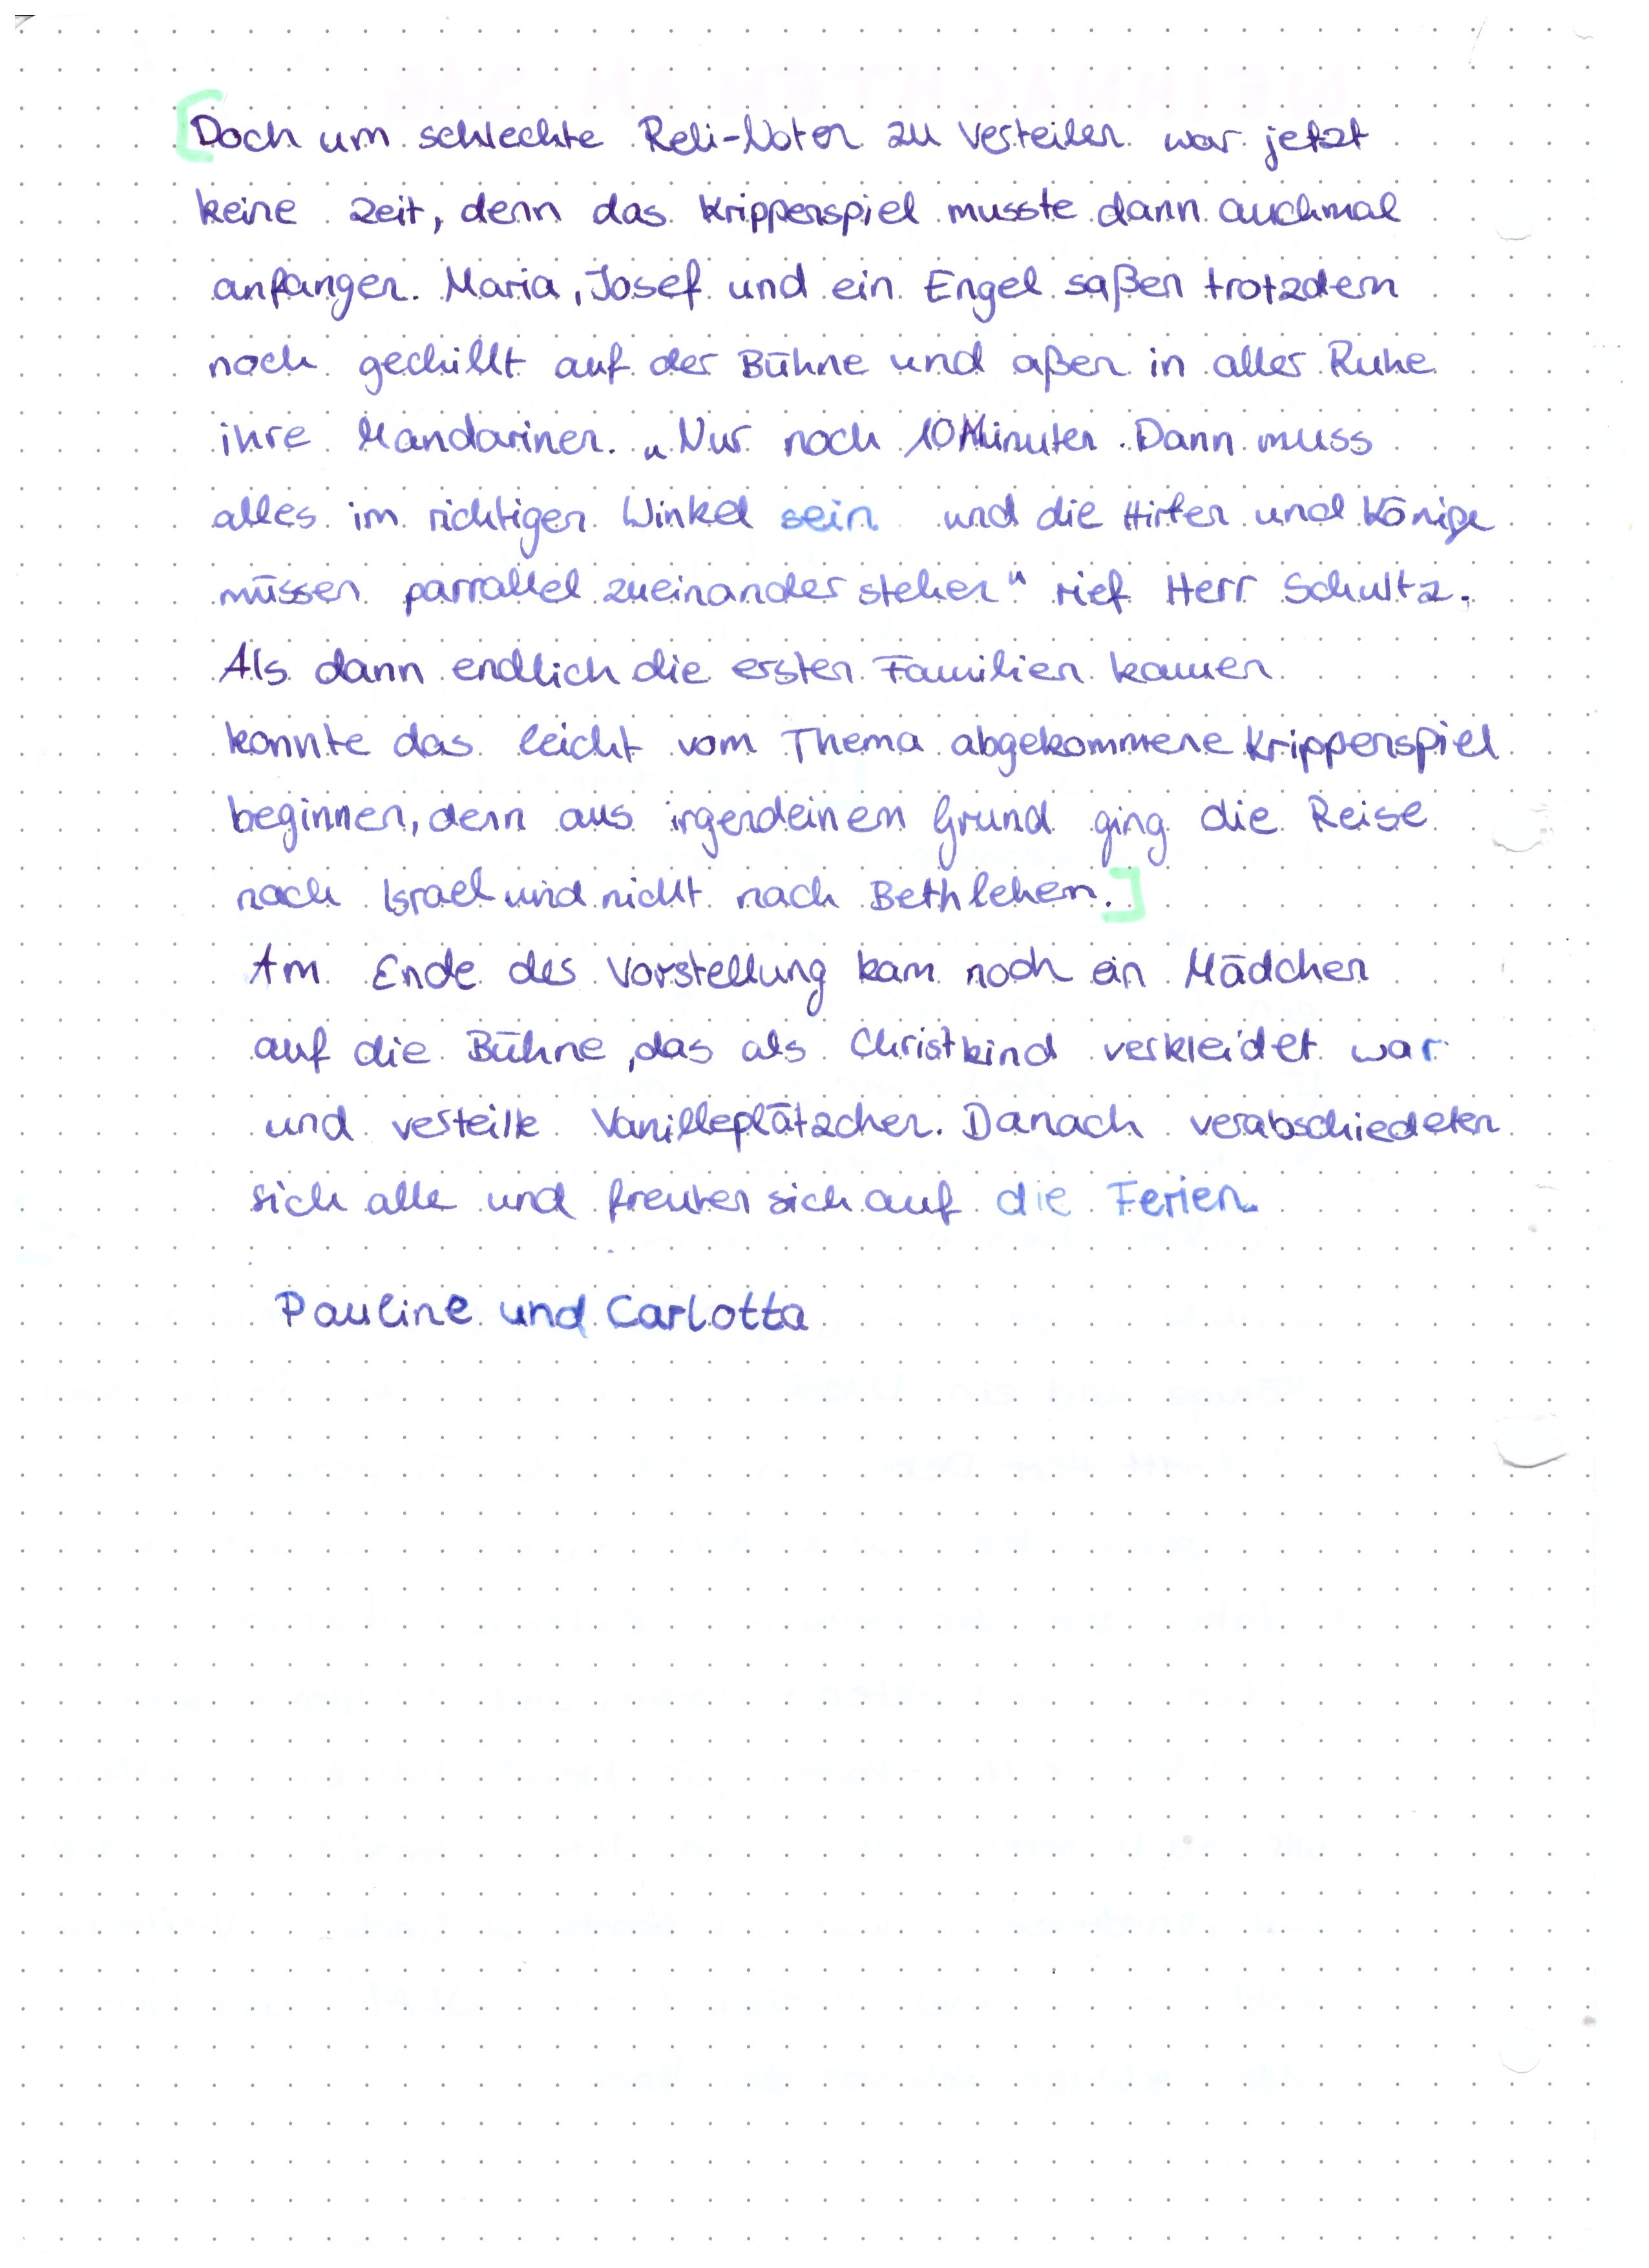 [Doch um schlechte Reli-Noten zu verteilen war jetzt
keine Zeit, denn das Krippenspiel musste dann auchmal
anfangen. Maria, Josef und ein Engel saßen trotzdem
noch gechillt auf der Bühne und aßen in aller Ruhe
ihre Mandarinen. „Nur noch 10 Minuten. Dann muss
alles im richtigen Winkel sein und die Hirten und Könige
müssen parrallel zueinander stehen" rief Herr Schultz.
Als dann endlich die ersten Familien kamen
konnte das leicht vom Thema abgekommene Krippenspiel
beginnen, denn aus irgendeinem Grund ging die Reise
nach Israel und nicht nach Bethlehem.]
Am Ende des Vorstellung kam noch ein Mädchen
auf die Bühne, das als Christkind verkleidet war
und verteilte Vanilleplätzchen. Danach verabschiedeten
sich alle und freuten sich auf die Ferien.
Pauline und Carlotta